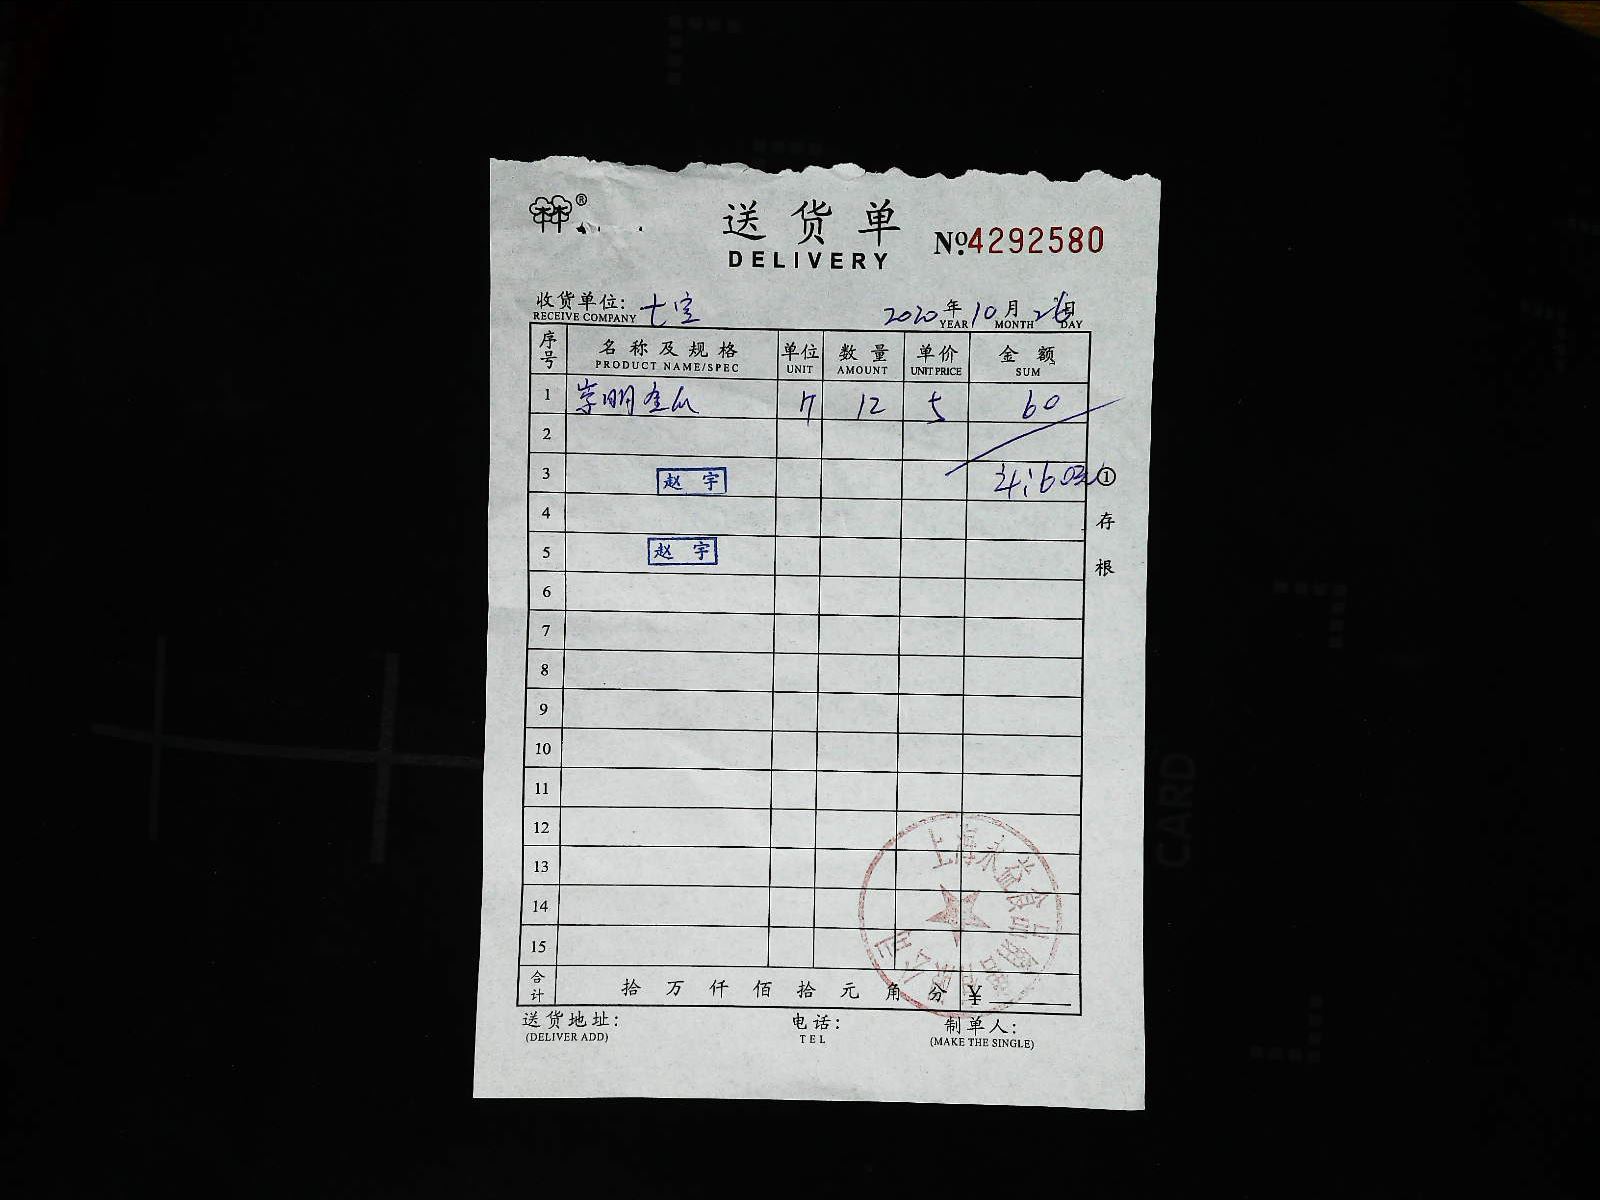 送货单
DELIVERY
No.4292580
收货单位: 七宝
RECEIVE COMPANY
2020年10月26日
YEAR MONTH DAY
序号 名称及规格 单位 数量 单价 金额
PRODUCT NAME/SPEC UNIT AMOUNT UNIT PRICE SUM
1 崇明金瓜 12 5 60
2
3 赵宇 计:60元 ①
4
5 赵宇
存根
6
7
8
9
10
11
12
13
14
15
上海永益食品有限公司
合计 拾万仟佰拾元角分 ¥
送货地址: 电话: 制单人:
(DELIVER ADD) TEL (MAKE THE SINGLE)
CARD